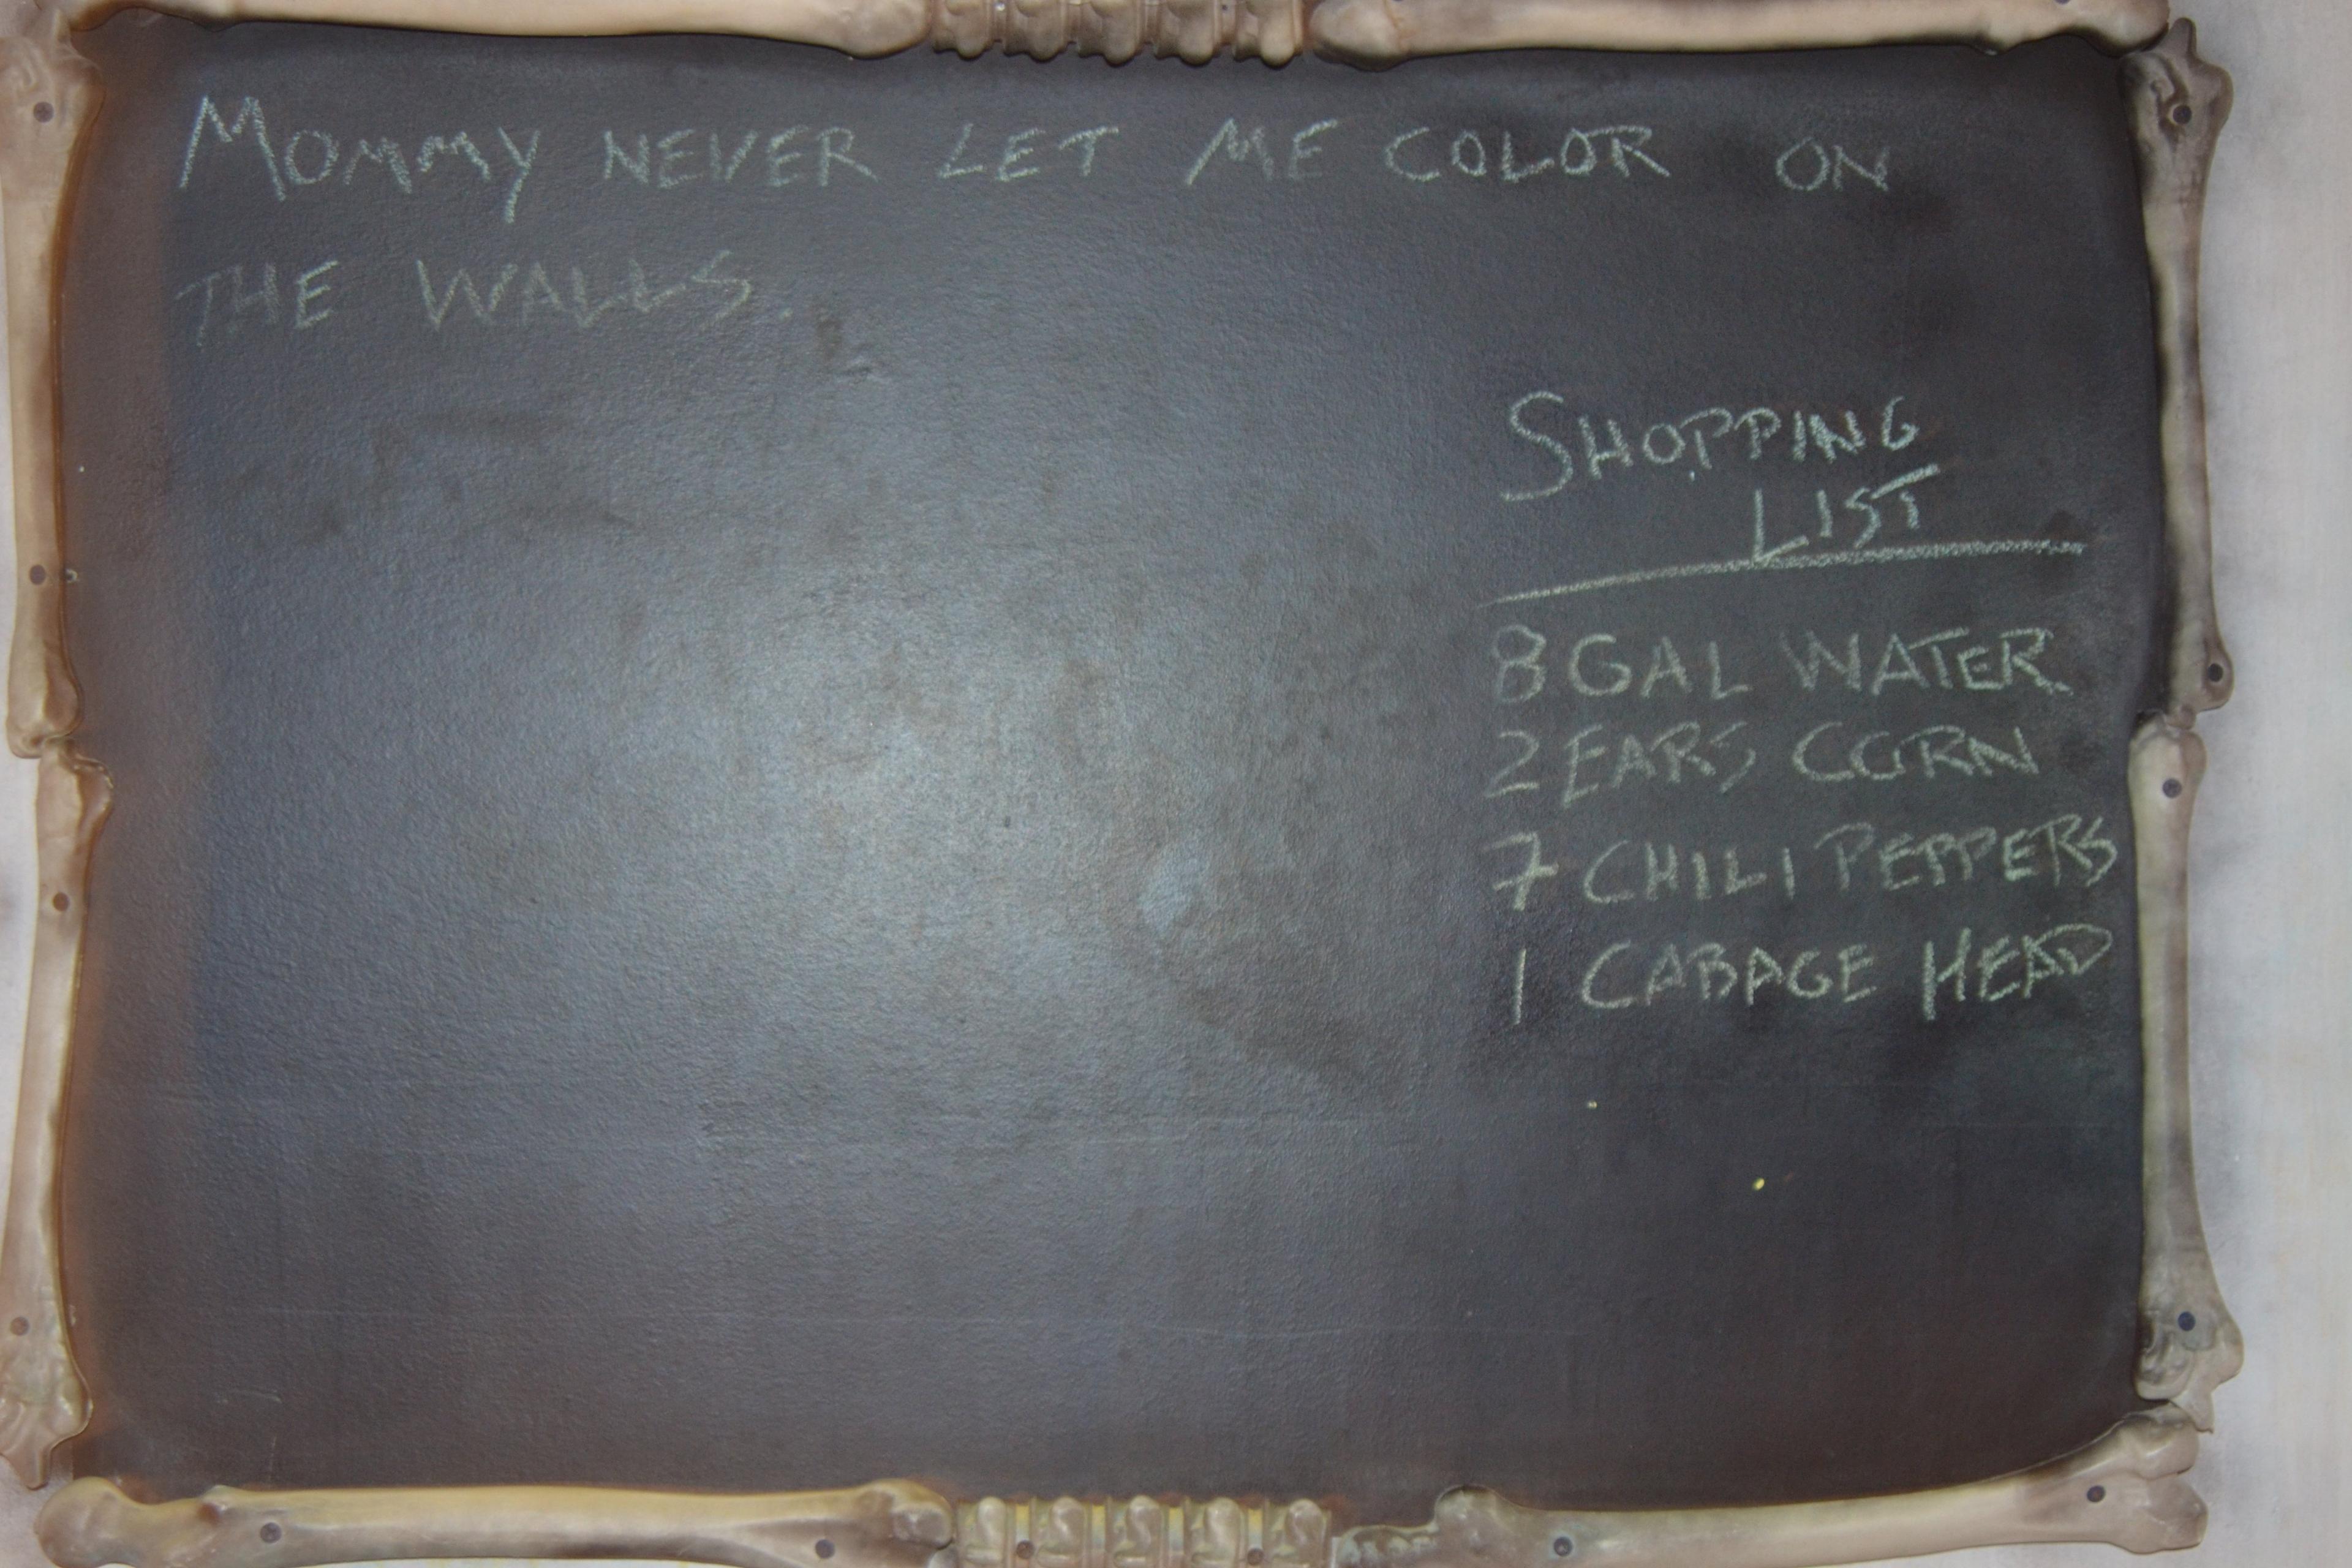 MOMMY NEVER LET ME COLOR ON
THE WALLS.
SHOPPING
LIST
8 GAL WATER
2 EARS CORN
7 CHILI PEPPERS
1 CABAGE HEAD